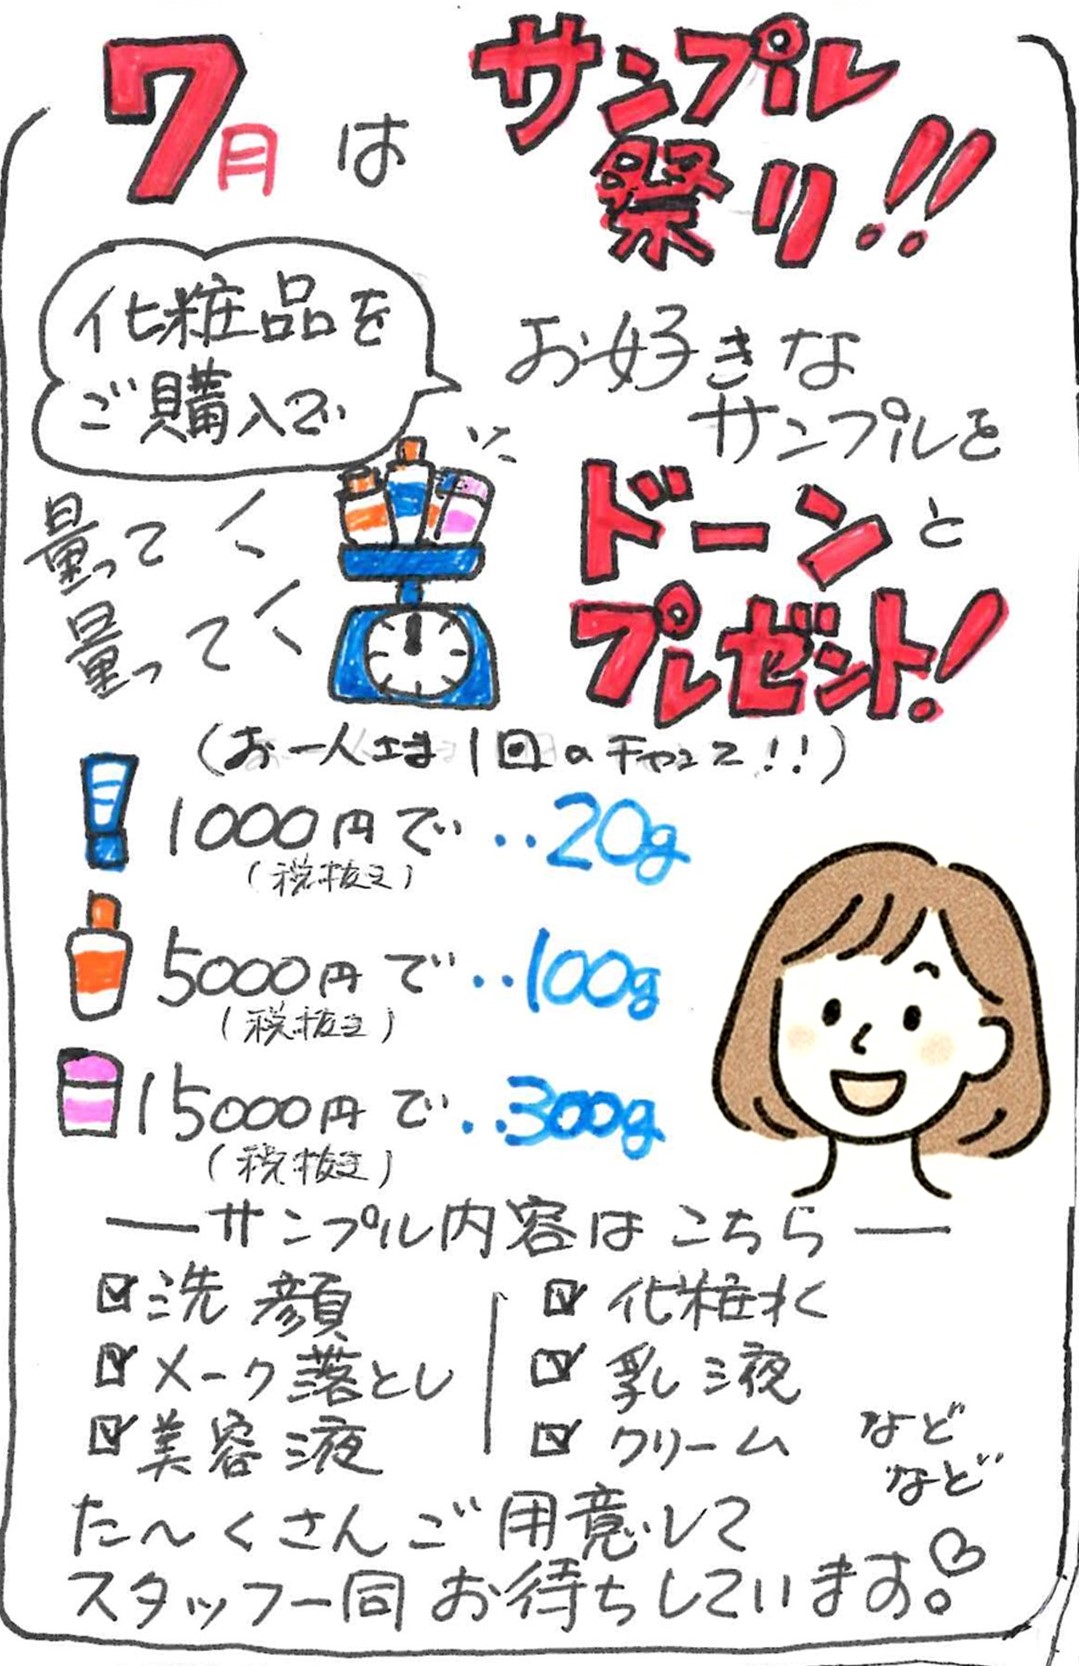 7月は
サンプル
祭り!!
化粧品を
ご購入で
お好きな
サンプルを
ドーンと
プレゼント!
量って
量って
(お一人さま1回のチャンス!!)
1000円で‥20g
(税抜き)
5000円で‥100g
(税抜き)
15000円で‥300g
(税抜き)
―サンプル内容はこちら―
☑洗顔
☑メーク落とし
☑美容液
☑化粧水
☑乳液
☑クリーム
など
など
た〜くさんご用意して
スタッフ一同お待ちしています。♡